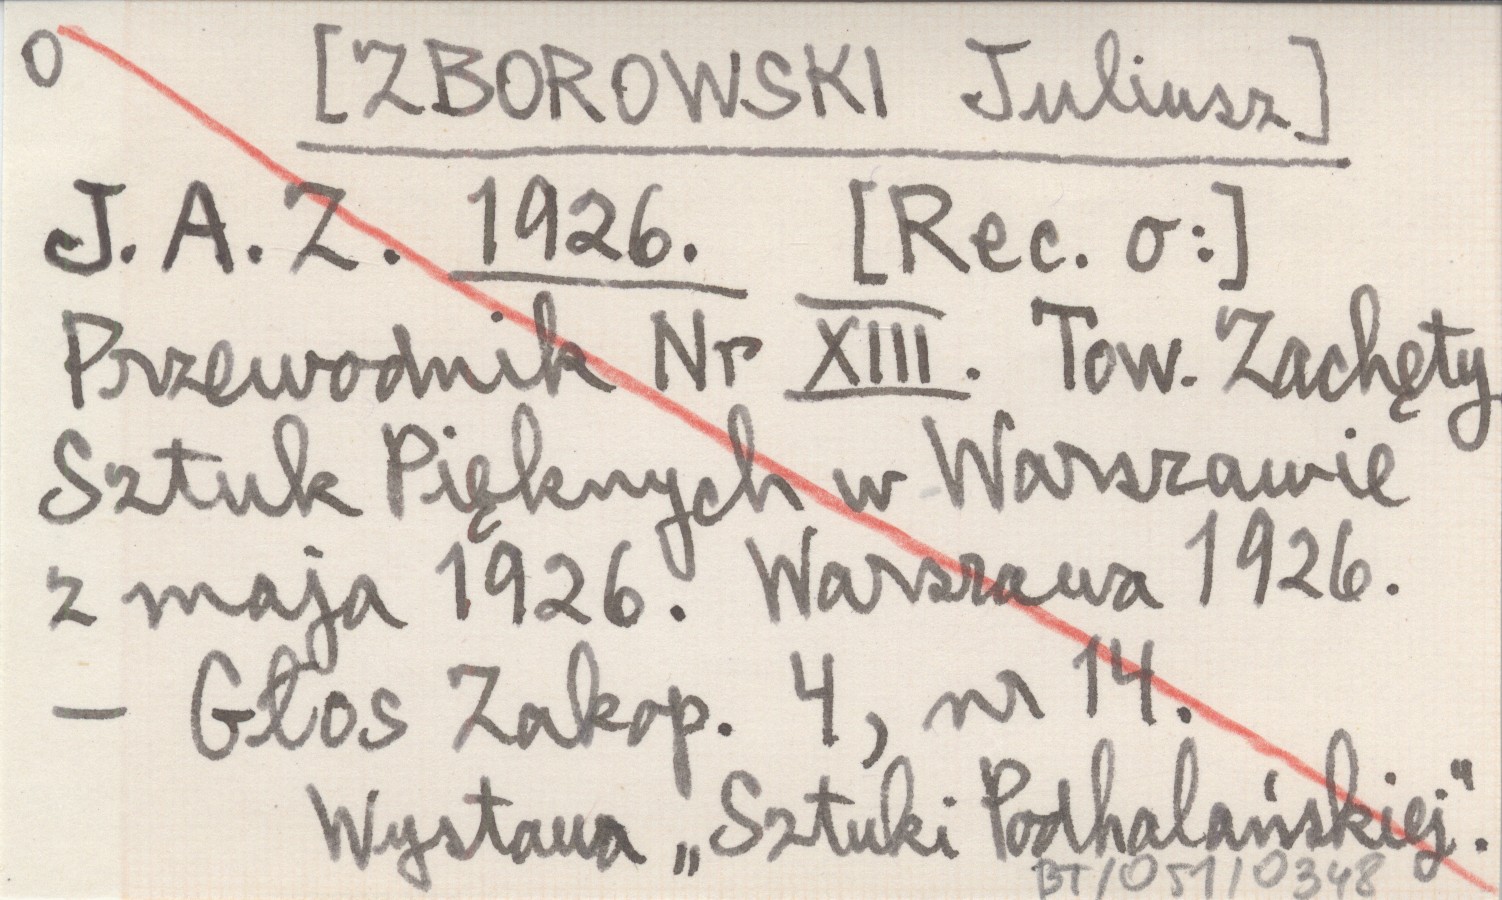 O [ZBOROWSKI Juliusz]
J. A. Z. 1926. [Rec. o:]
Przewodnik Nr XIII. Tow. Zachęty
Sztuk Pięknych w Warszawie
z maja 1926. Warszawa 1926.
— Głos Zakop. 4, nr 14.
Wystawa „Sztuki Podhalańskiej".
BT/051/0348